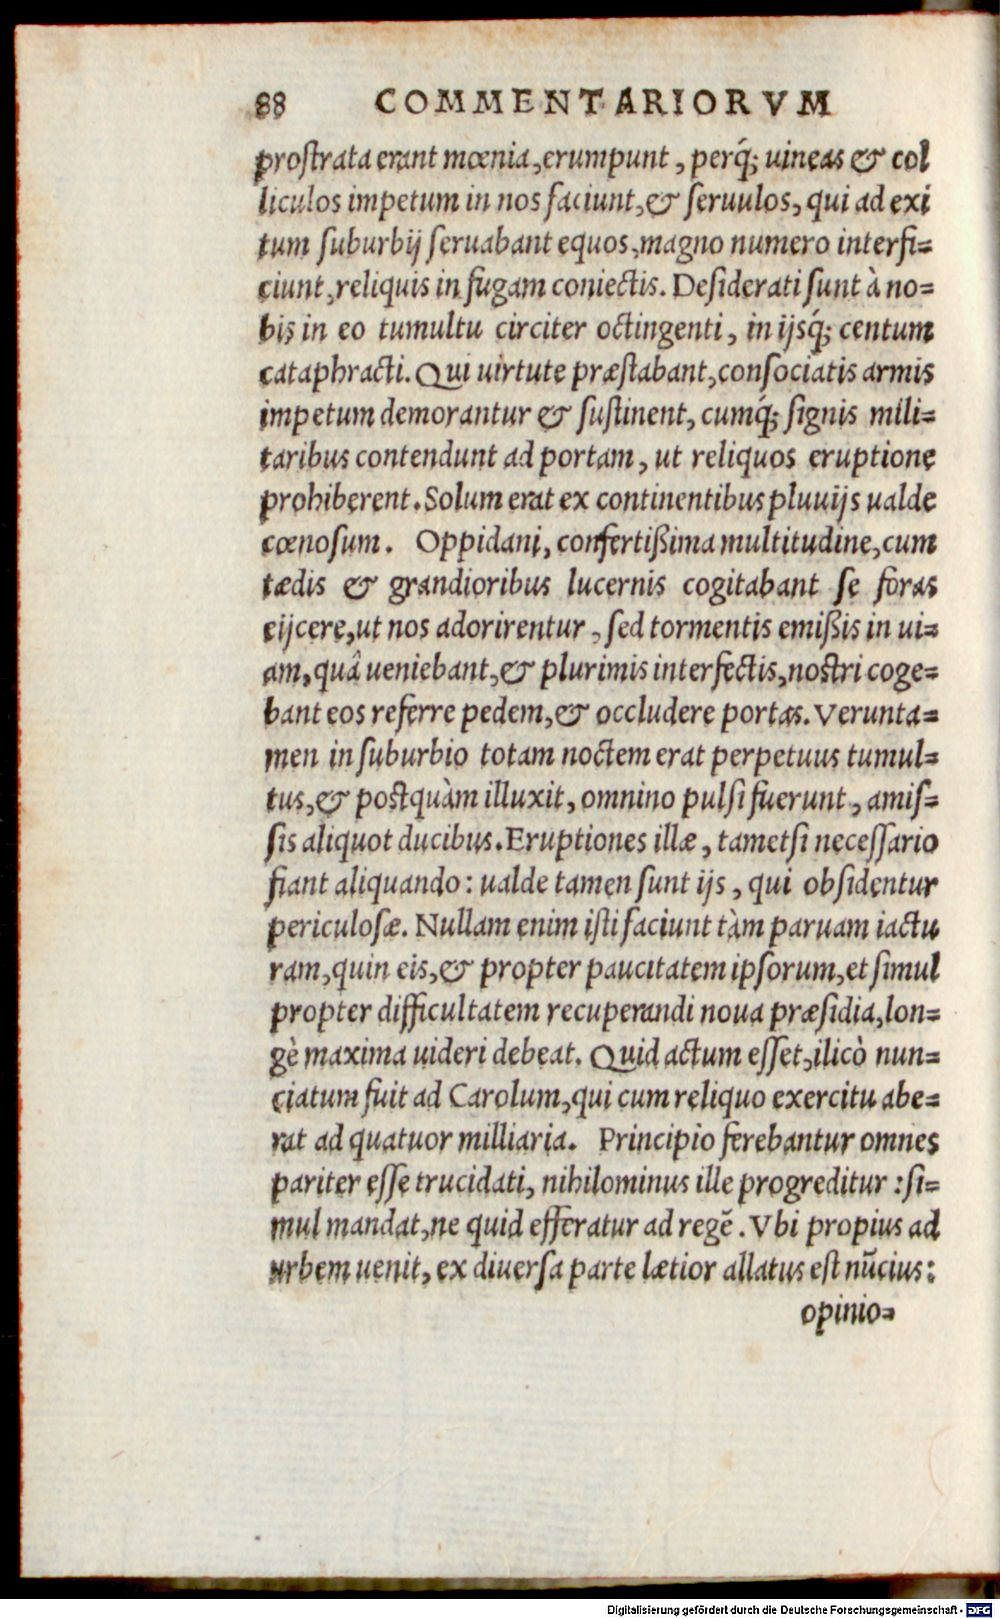 88 COMMENTARIORVM
prostrata erant mœnia, erumpunt, perq́; uineas & col
liculos impetum in nos faciunt, & seruulos, qui ad exi
tum suburbij seruabant equos, magno numero interfi=
ciunt, reliquis in fugam coniectis. Desiderati sunt à no=
bis in eo tumultu circiter octingenti, in ijsq́; centum
cataphracti. Qui uirtute præstabant, consociatis armis
impetum demorantur & sustinent, cumq́; signis mili=
taribus contendunt ad portam, ut reliquos eruptione
prohiberent. Solum erat ex continentibus pluuijs ualde
cœnosum. Oppidani, confertißima multitudine, cum
tædis & grandioribus lucernis cogitabant se foras
eijcere, ut nos adorirentur, sed tormentis emißis in ui=
am, quâ ueniebant, & plurimis interfectis, nostri coge=
bant eos referre pedem, & occludere portas. Verunta=
men in suburbio totam noctem erat perpetuus tumul=
tus, & postquàm illuxit, omnino pulsi fuerunt, amis=
sis aliquot ducibus. Eruptiones illæ, tametsi necessario
fiant aliquando: ualde tamen sunt ijs, qui obsidentur
periculosæ. Nullam enim isti faciunt tàm paruam iactu
ram, quin eis, & propter paucitatem ipsorum, et simul
propter difficultatem recuperandi noua præsidia, lon=
gè maxima uideri debeat. Quid actum esset, ilicò nun=
ciatum fuit ad Carolum, qui cum reliquo exercitu abe=
rat ad quatuor milliaria. Principio ferebantur omnes
pariter esse trucidati, nihilominus ille progreditur: si=
mul mandat, ne quid efferatur ad regē. Vbi propius ad
urbem uenit, ex diuersa parte lætior allatus est nūcius:
opinio=
Digitalisierung gefördert durch die Deutsche Forschungsgemeinschaft - DFG